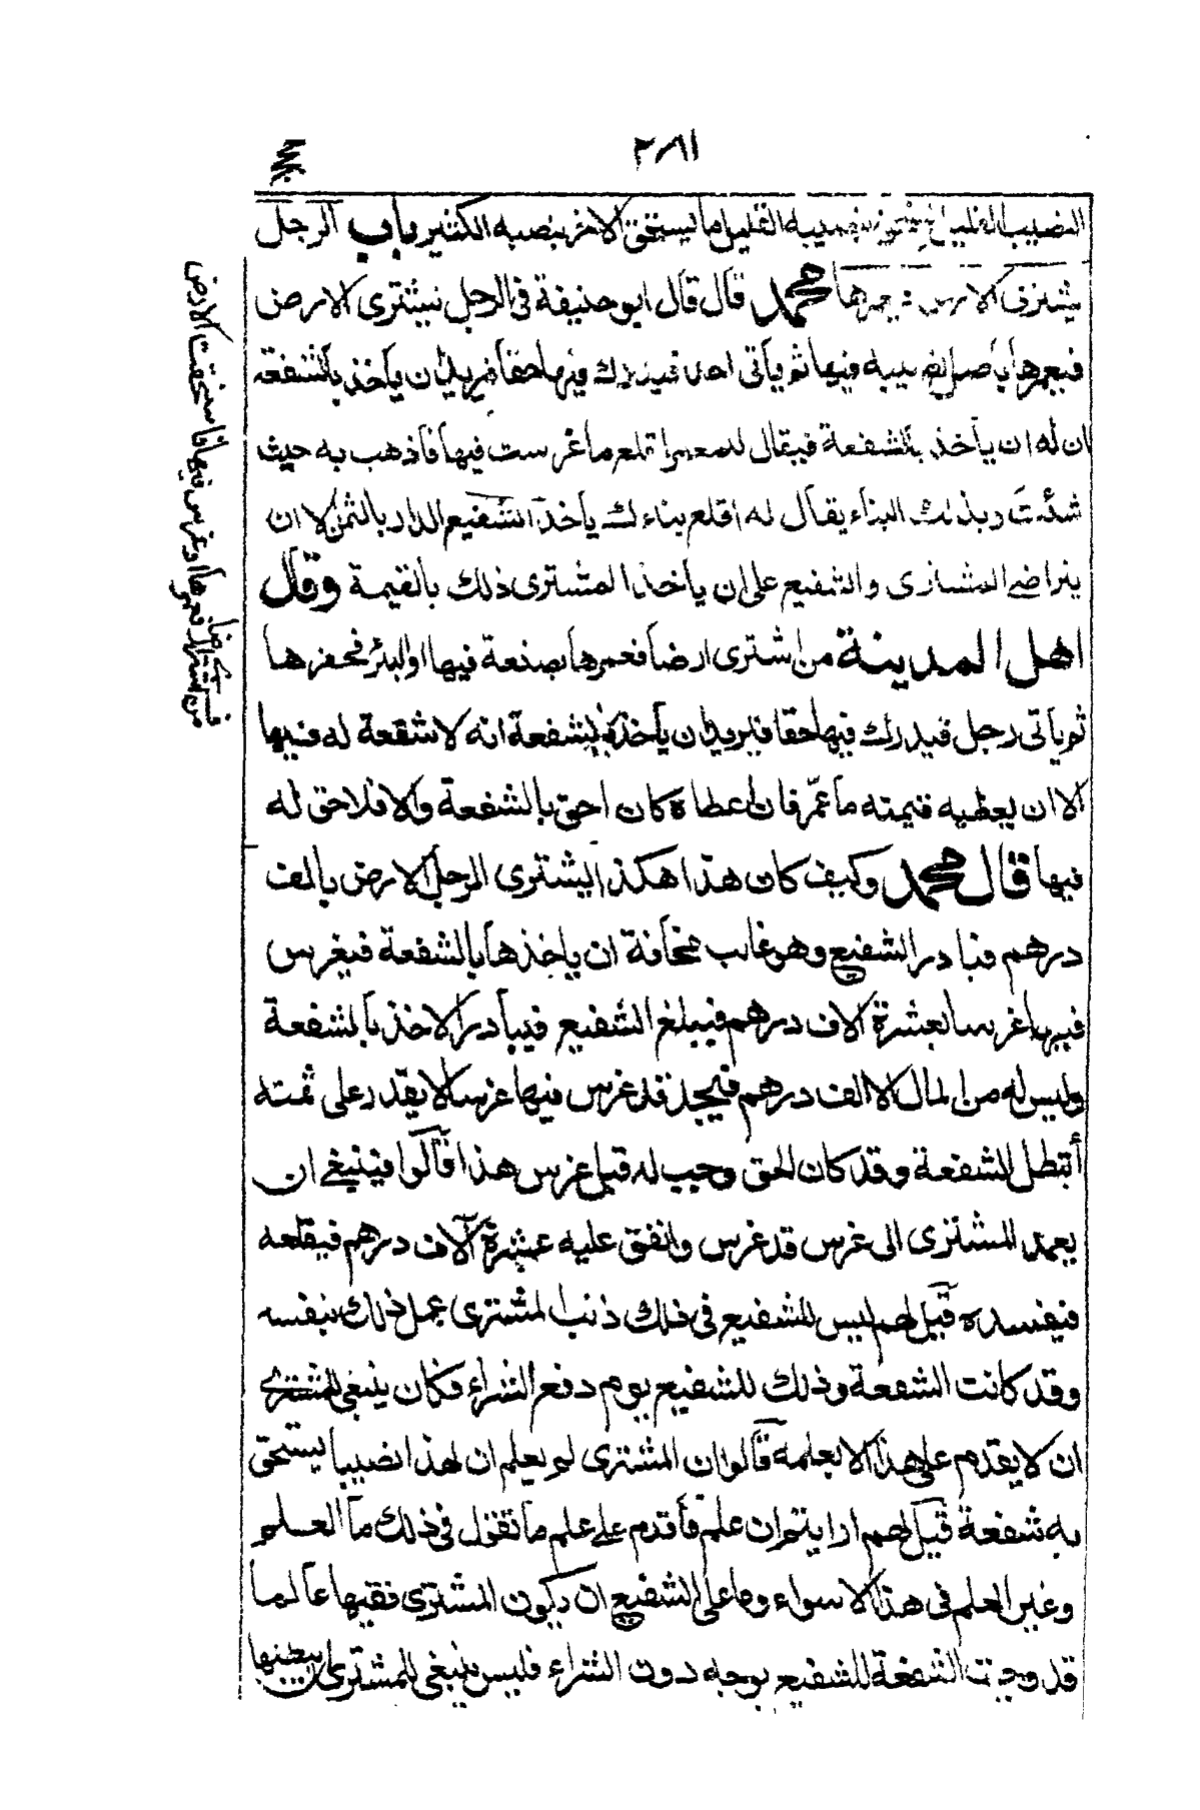 ٢٨١
النصيب القليل بنصيبه القليل ما يستحق الاخر بنصيبه الكثير باب الرجل
يشترى الارض فيعمرها محمد قال قال ابو حنيفة فى الرجل يشترى الارض
فيعمرها باصل يضعه فيها ثم ياتى احد فيدرك فيها حقا فيريد ان ياخذ بالشفعة
ان له ان ياخذ بالشفعة فيقال للمعمر اقلع ما غرست فيها فاذهب به حيث
شئت وبذلك البناء يقال له اقلع بناءك ياخذ الشفيع الدار بالثمن الا ان
يتراضى المشترى والشفيع على ان ياخذ المشترى ذلك بالقيمة وقال
اهل المدينة من اشترى ارضا فعمرها بصنعة فيها او البئر فحفرها
ثم ياتى رجل فيدرك فيها حقا فيريد ان ياخذها بشفعة انه لا شفعة له فيها
الا ان يعطيه قيمته ما عمّر فان اعطاه كان احق بالشفعة والا فلا حق له
فيها قال محمد وكيف كان هذا هكذا يشترى الرجل الارض بالف
درهم فبادر الشفيع وهو غائب مخافة ان ياخذها بالشفعة فيغرس
فيها غرسا بعشرة الاف درهم فيبلغ الشفيع فيبادر الاخذ بالشفعة
وليس له من المال الا الف درهم فيجد قد غرس فيها غرسا لا يقدر على ثمنه
أتبطل الشفعة وقد كان الحق وجب له قبل غرس هذا قالوا فينبغى ان
يعمد المشترى الى غرس قد غرس وانفق عليه عشرة آلاف درهم فيقلعه
فيفسده قيل لهم ليس للشفيع فى ذلك ذنب المشترى عمل ذلك بنفسه
وقد كانت الشفعة وذلك للشفيع يوم دفع الشراء فكان ينبغى للمشترى
ان لا يقدم على هذا الا بعلمه قالوا ان المشترى لم يعلم ان لهذا نصيبا يستحق
به شفعة قيل لهم ارايتم ان علم فأقدم على علم ما تقول فى ذلك ما العلم
وغير العلم فى هذا الا سواء وما على الشفيع ان يكون المشترى فقيها عالما
قد وجبت الشفعة للشفيع بوجه دون الشراء فليس ينبغى للمشترى
من اشترى ارضا فعمرها او غرس فيها فاستحقت الارض